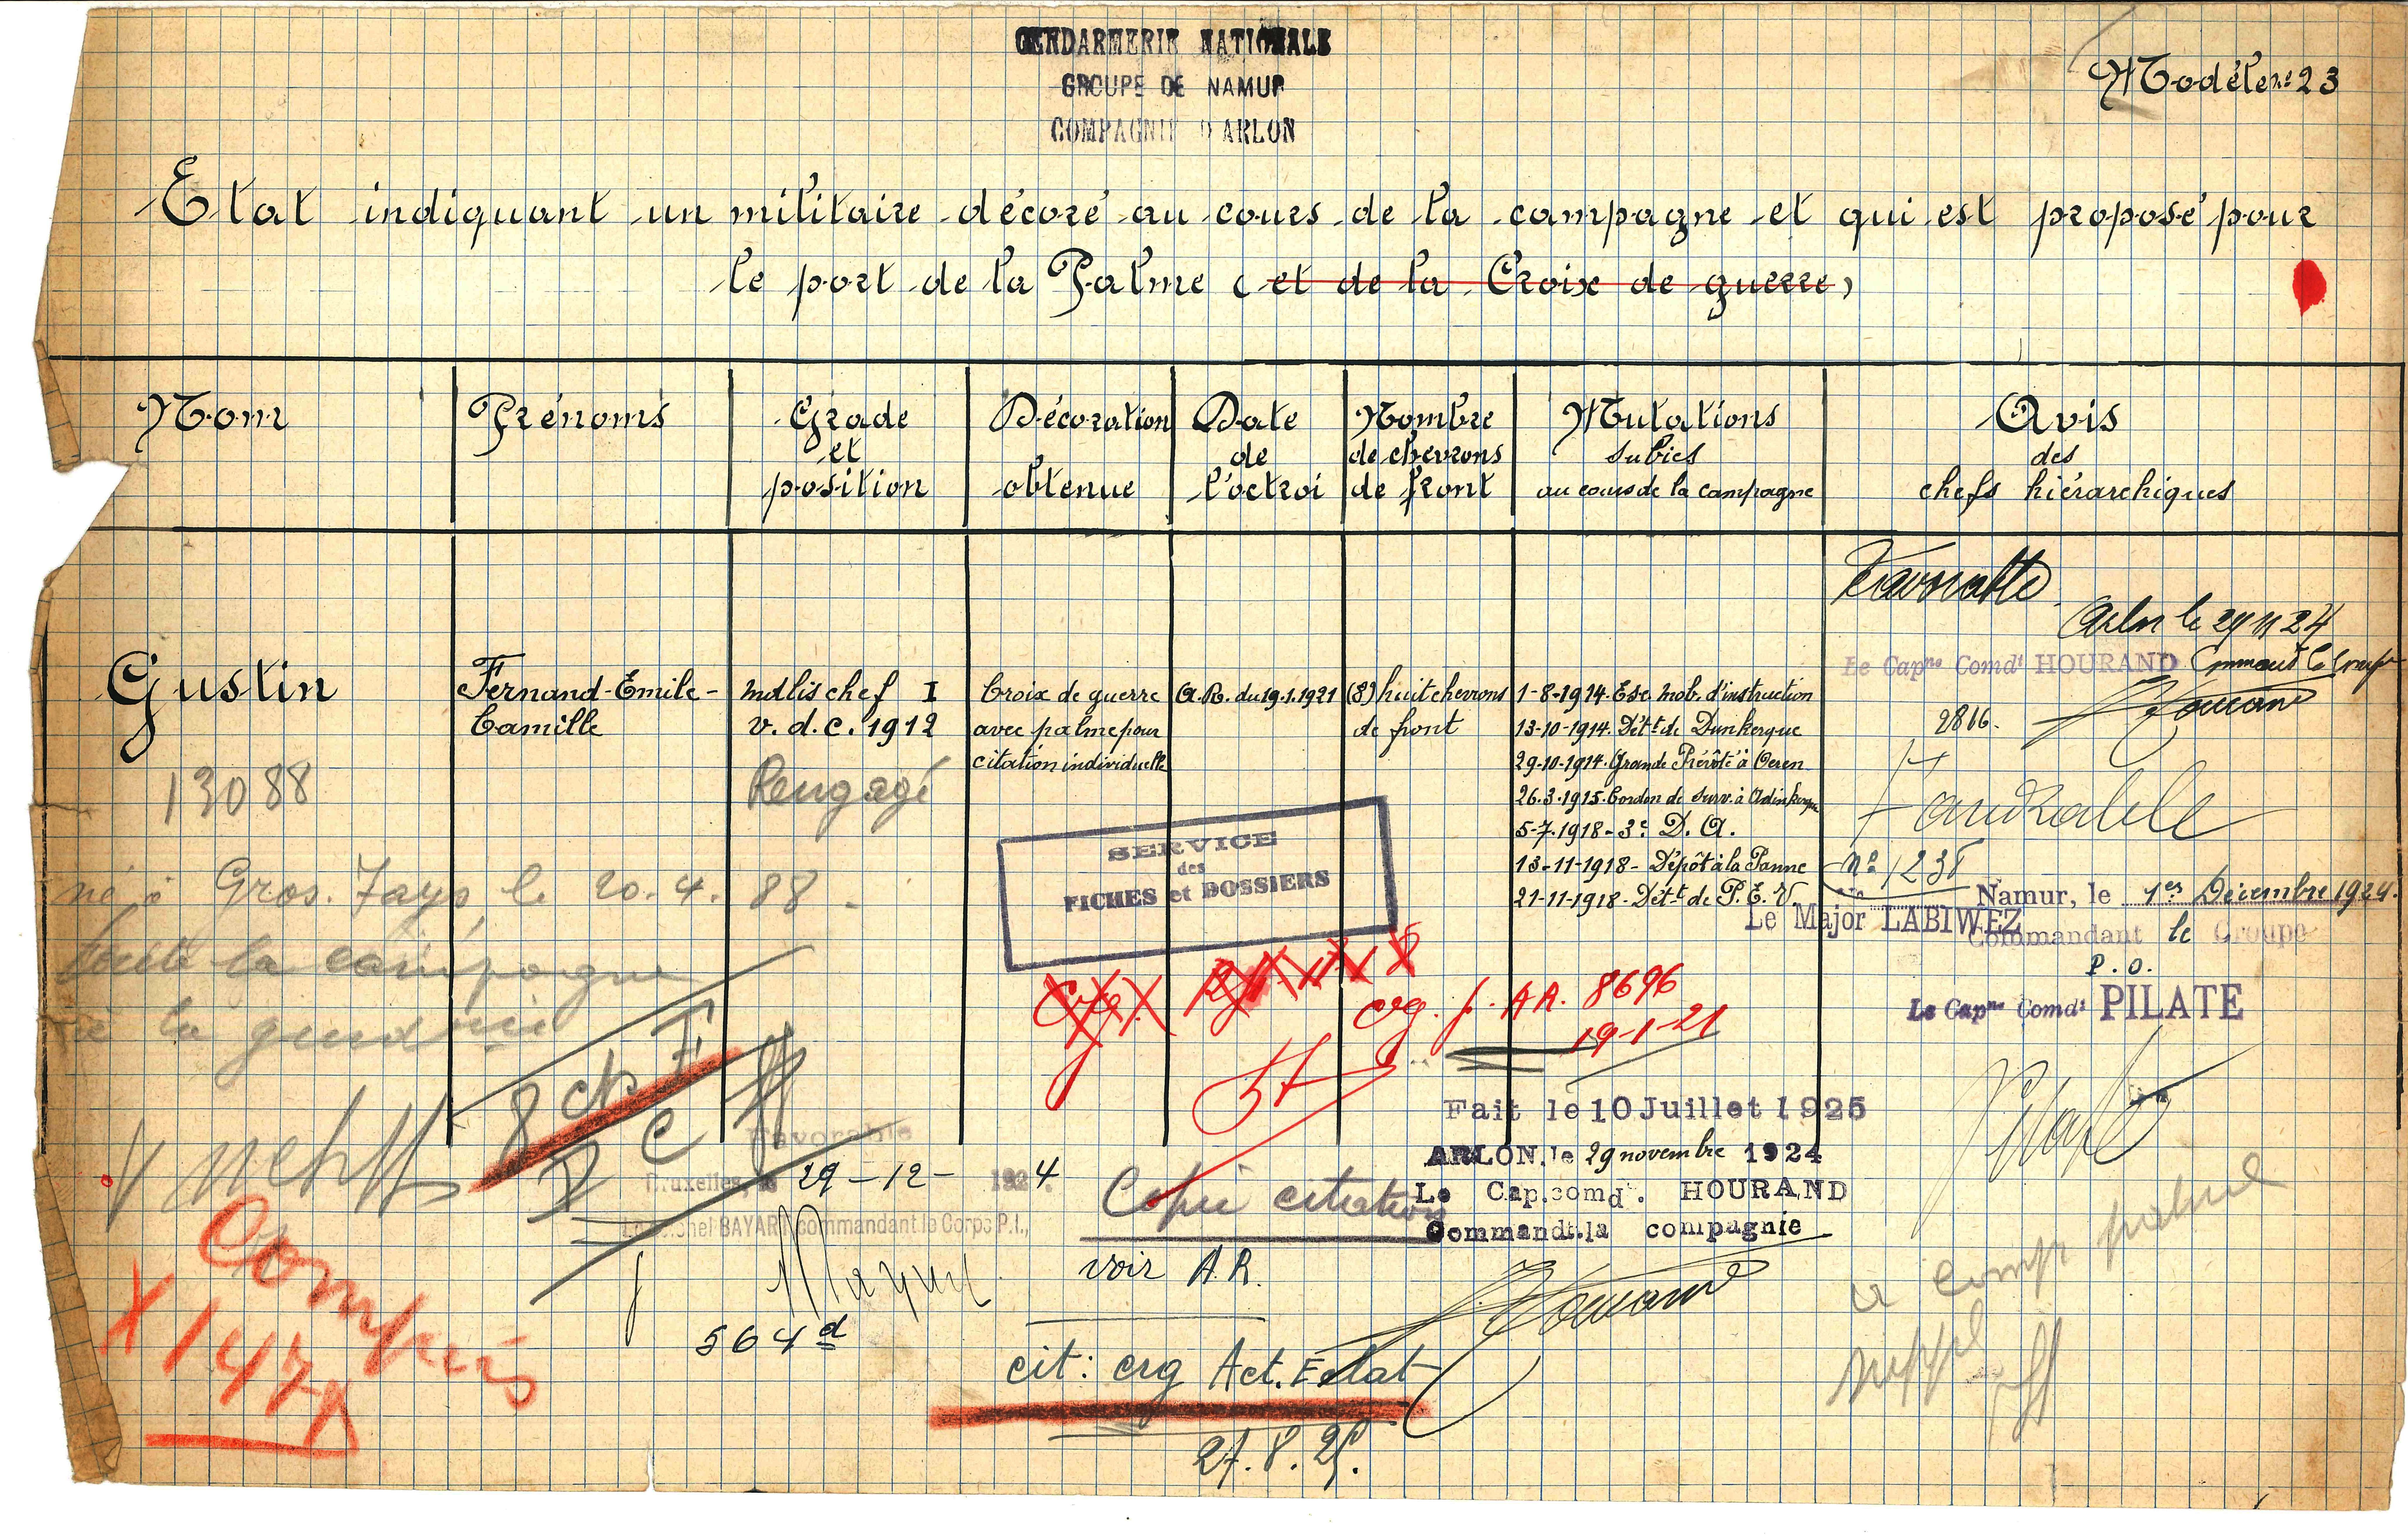 GENDARMERIE NATIONALE
GROUPE DE NAMUR
COMPAGNIE D'ARLON
Modèle n: 23
Etat indiquant un militaire décoré au cours de la campagne et qui est proposé pour
le port de la Palme (et de la Croix de guerre)
Nom
Prénoms
Grade
et
position
Décoration
obtenue
Date
de
l'octroi
Nombre
de chevrons
de front
Mutations
subies
au cours de la campagne
Avis
des
chefs hiérarchiques
Gustin
13088
né à Gros. Fays, le 20.4.88.
toute la campagne
à la gend
Fernand-Emile-
Camille
mdlis chef I
v.d.c. 1912
Rengagé
Croix de guerre
avec palme pour
citation individuelle
A.R. du 19.1.1921
(8) huit chevrons
de front
1-8-1914. Esc. mob. d'instruction
13-10-1914. Dét.t de Dunkerque
29-10-1914. Grande Prévôté à Oeren
26.3.1915. Cordon de surv. à Adinkerque
5-7-1918 - 3e D.A.
13-11-1918 - Dépôt à la Panne
21-11-1918 - Dét.t de P.E.V
Favorable
Arlon le 29 11 24
Le Capne Comdt HOURAND Commandt le Groupe
2866.
Favorable
No 1238
Namur, le 1er Décembre 1924.
Le Major LABIWEZ
Commandant le Groupe
P.O.
Le Capne Comdt PILATE
SERVICE
des
FICHES et DOSSIERS
crg. p. AR. 8696
19-1-21
8 ch F
Favorable
Bruxelles, le 29-12-1924.
BAYART commandant le Corps P.I.,
564d
Fait le 10 Juillet 1925
ARLON, le 29 novembre 1924
Le Cap.comdt. HOURAND
Commandt.la compagnie
Copie citation
voir A.R.
cit: crg Act. Eclat
27.8.25.
Compris
X 1478
à comp palme